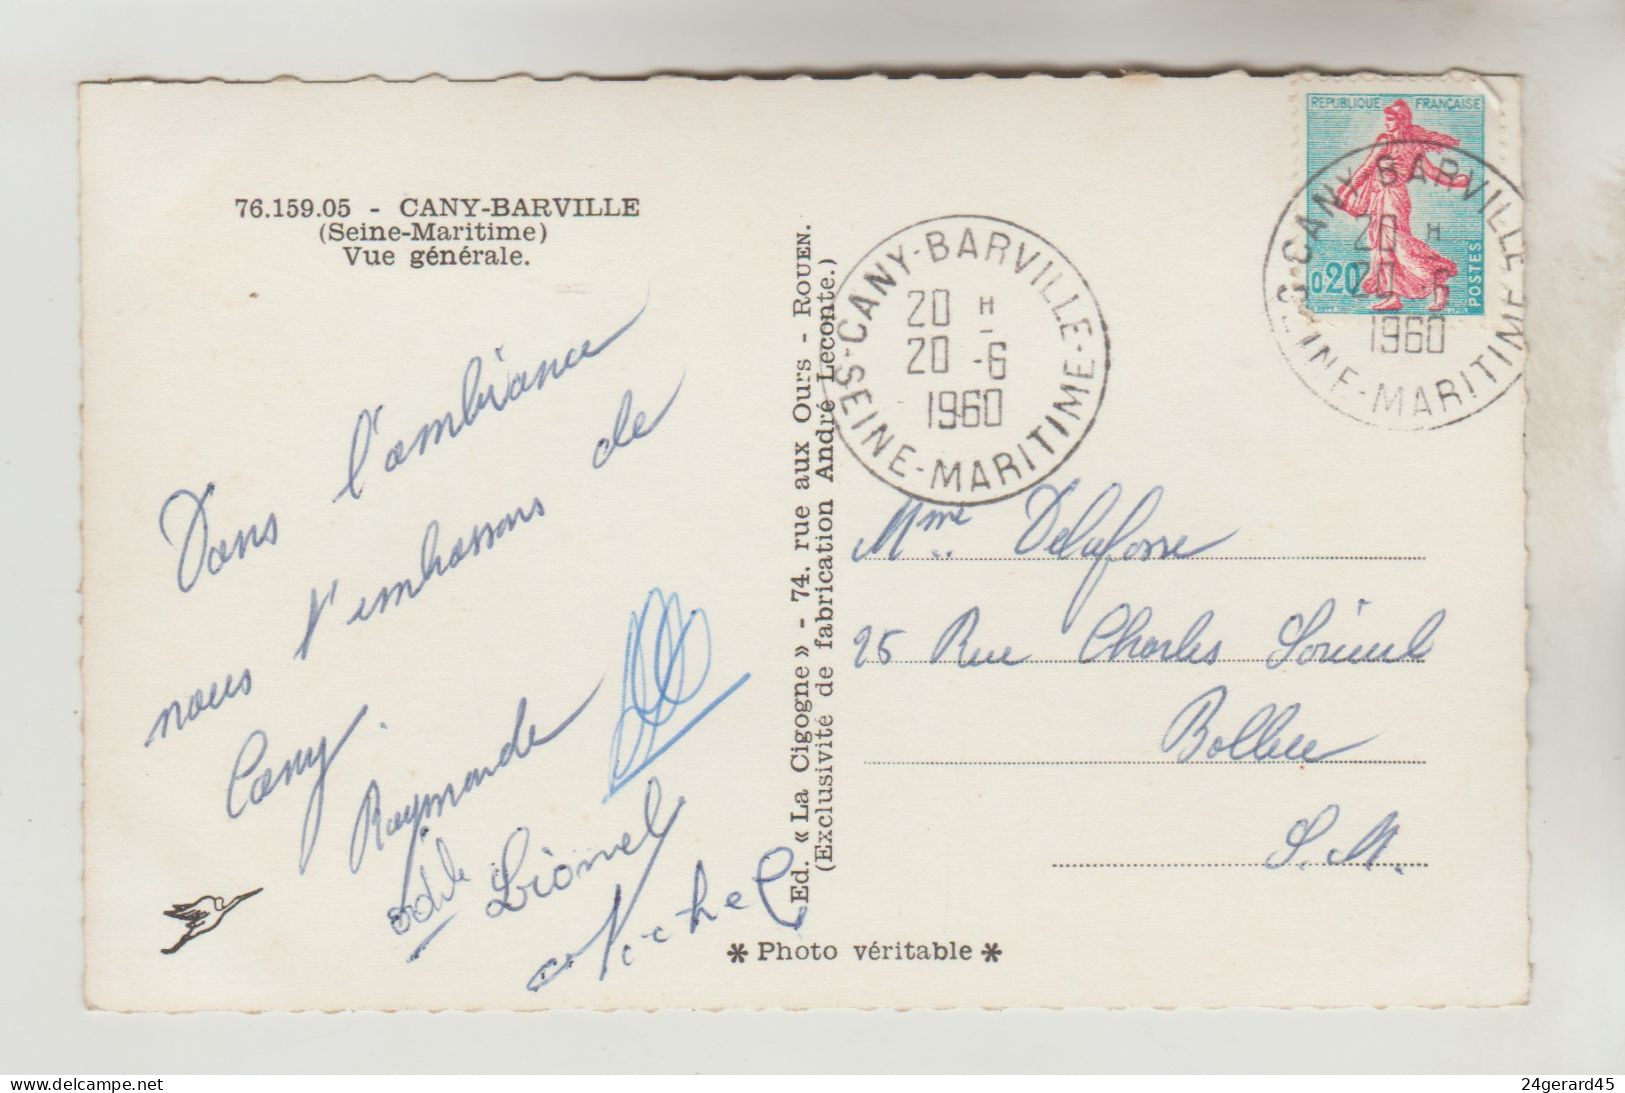 76.159.05 - CANY-BARVILLE
(Seine-Maritime)
Vue générale.
Dans l'ambiance
nous t'embrassons de
Cany.
Raymonde
odile
Lionel
Michel
Ed. « La Cigogne » - 74. rue aux Ours - ROUEN.
(Exclusivité de fabrication André Leconte.)
* Photo véritable *
CANY-BARVILLE
20 H
20 -6
1960
SEINE-MARITIME
REPUBLIQUE FRANÇAISE
0,20
POSTES
CANY-BARVILLE
20 H
20 -6
1960
SEINE-MARITIME
Mme Delafosse
25 Rue Charles
Bolbec
S. M.
delcampe.net
24gerard45